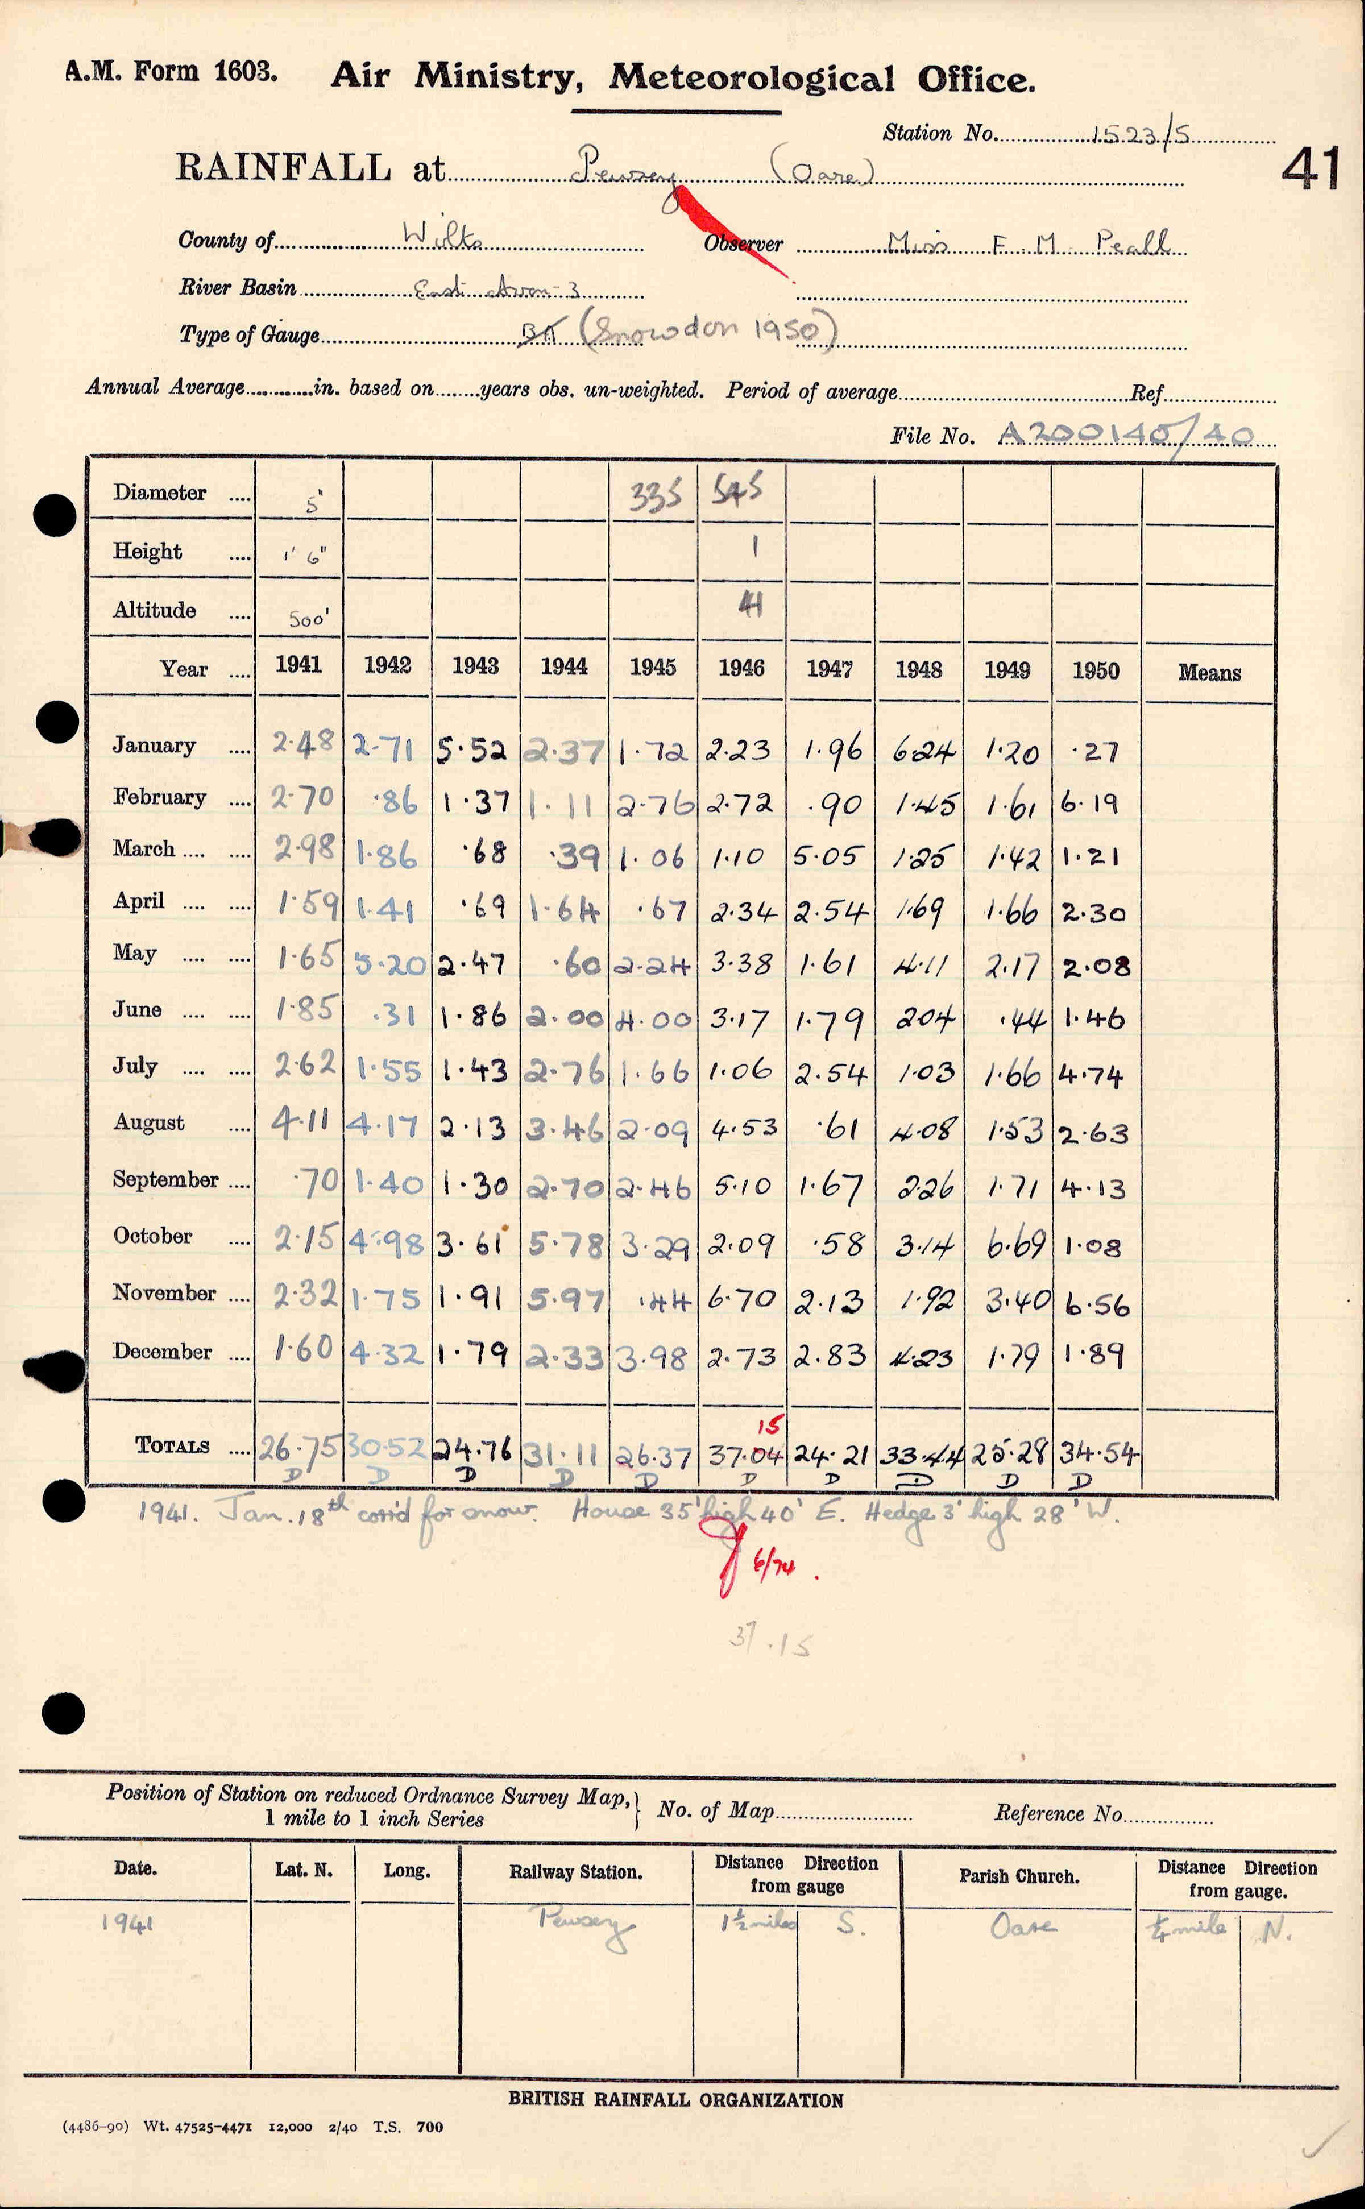 A.M. Form 1603. Air Ministry, Meteorological Office.
Station No. 1523/5
41
RAINFALL at Pewsey (Oare)
County of Wilts Observer Miss F. M. Peall
River Basin East Avon-3
Type of Gauge (Snowdon 1950)
Annual Average in. based on years obs. un-weighted. Period of average Ref.
File No. A200145/40
Diameter 5" 335 545
Height 1' 6" 1
Altitude 500' 41
Year 1941 1942 1943 1944 1945 1946 1947 1948 1949 1950 Means
January 2.48 2.71 5.52 2.37 1.72 2.23 1.96 6.24 1.20 .27
February 2.70 .86 1.37 1.11 2.76 2.72 .90 1.45 1.61 6.19
March 2.98 1.86 .68 .39 1.06 1.10 5.05 1.25 1.42 1.21
April 1.59 1.41 .69 1.64 .67 2.34 2.54 1.69 1.66 2.30
May 1.65 5.20 2.47 .60 2.24 3.38 1.61 4.11 2.17 2.08
June 1.85 .31 1.86 2.00 4.00 3.17 1.79 2.04 .44 1.46
July 2.62 1.55 1.43 2.76 1.66 1.06 2.54 1.03 1.66 4.74
August 4.11 4.17 2.13 3.46 2.09 4.53 .61 4.08 1.53 2.63
September .70 1.40 1.30 2.70 2.46 5.10 1.67 2.26 1.71 4.13
October 2.15 4.98 3.61 5.78 3.29 2.09 .58 3.14 6.69 1.08
November 2.32 1.75 1.91 5.97 .44 6.70 2.13 1.92 3.40 6.56
December 1.60 4.32 1.79 2.33 3.98 2.73 2.83 4.23 1.79 1.89
15
TOTALS 26.75 30.52 24.76 31.11 26.37 37.04 24.21 33.44 25.28 34.54
D D D D D D D D D D
1941. Jan. 18th corr'd for snow. House 35' high 40' E. Hedge 3' high 28' W.
6/74.
37.15
Position of Station on reduced Ordnance Survey Map,
1 mile to 1 inch Series No. of Map Reference No.
Date. Lat. N. Long. Railway Station. Distance Direction from gauge Parish Church. Distance Direction from gauge.
1941 Pewsey 1½ miles S. Oare ¼ mile N.
BRITISH RAINFALL ORGANIZATION
(4486-90) Wt. 47525-4471 12,000 2/40 T.S. 700